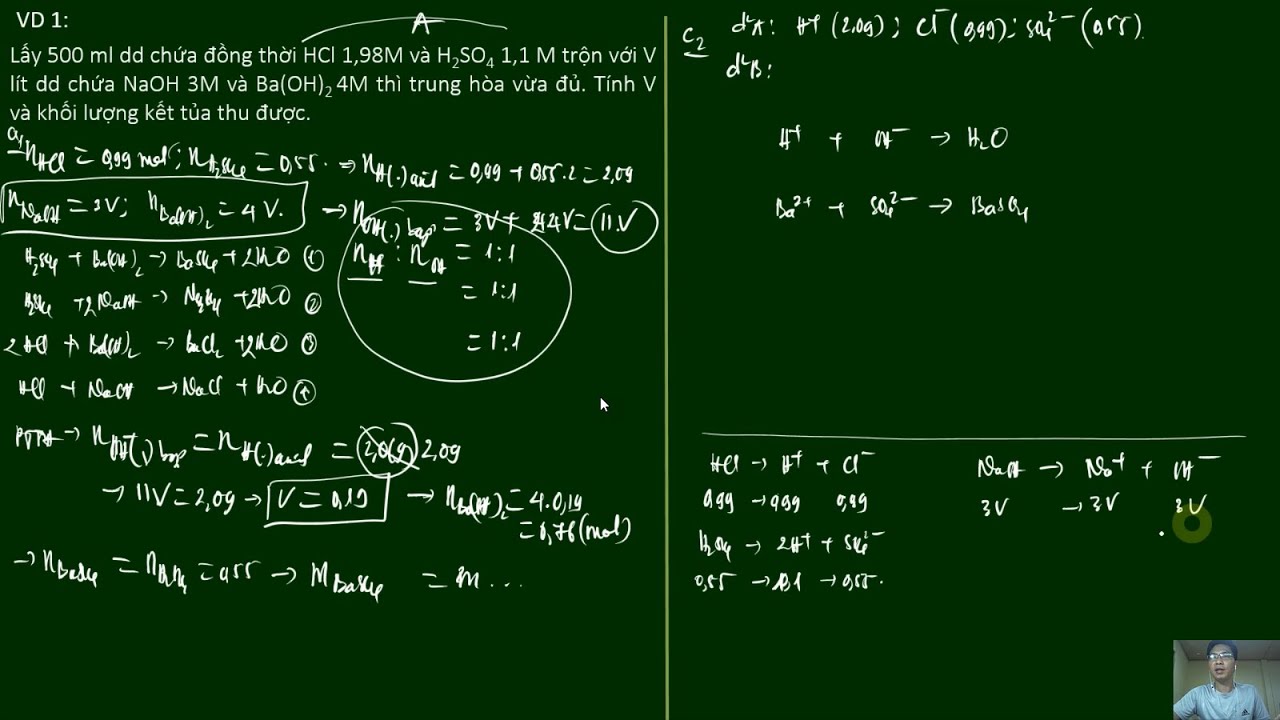 VD 1:
A
Lấy 500 ml dd chứa đồng thời HCl 1,98M và H₂SO₄ 1,1 M trộn với V
lít dd chứa NaOH 3M và Ba(OH)₂ 4M thì trung hòa vừa đủ. Tính V
và khối lượng kết tủa thu được.
a, nHCl = 0,99 mol; nH₂SO₄ = 0,55. → nH(·) axit = 0,99 + 0,55.2 = 2,09
nNaOH = 3V; nBa(OH)₂ = 4V. → nOH(·) bazo = 3V + 2.4V = 11.V
nH : nOH = 1:1
= 1:1
= 1:1
H₂SO₄ + Ba(OH)₂ → BaSO₄ + 2H₂O ①
H₂SO₄ + 2NaOH → Na₂SO₄ + 2H₂O ②
2HCl + Ba(OH)₂ → BaCl₂ + 2H₂O ③
HCl + NaOH → NaCl + H₂O ④
PTPƯ → nOH(·) bazo = nH(·) axit = 2,09
→ 11V = 2,09 → V = 0,19 → nBa(OH)₂ = 4.0,19
= 0,76 (mol)
→ nBaSO₄ = = 0,55 → mBaSO₄ = m ...
C₂
d²A: H⁺ (2,09); Cl⁻ (0,99); SO₄²⁻ (0,55).
d²B:
H⁺ + OH⁻ → H₂O
Ba²⁺ + SO₄²⁻ → BaSO₄
HCl → H⁺ + Cl⁻
0,99 → 0,99 0,99
H₂SO₄ → 2H⁺ + SO₄²⁻
0,55 → 1,1 → 0,55.
NaOH → Na⁺ + OH⁻
3V → 3V 3V